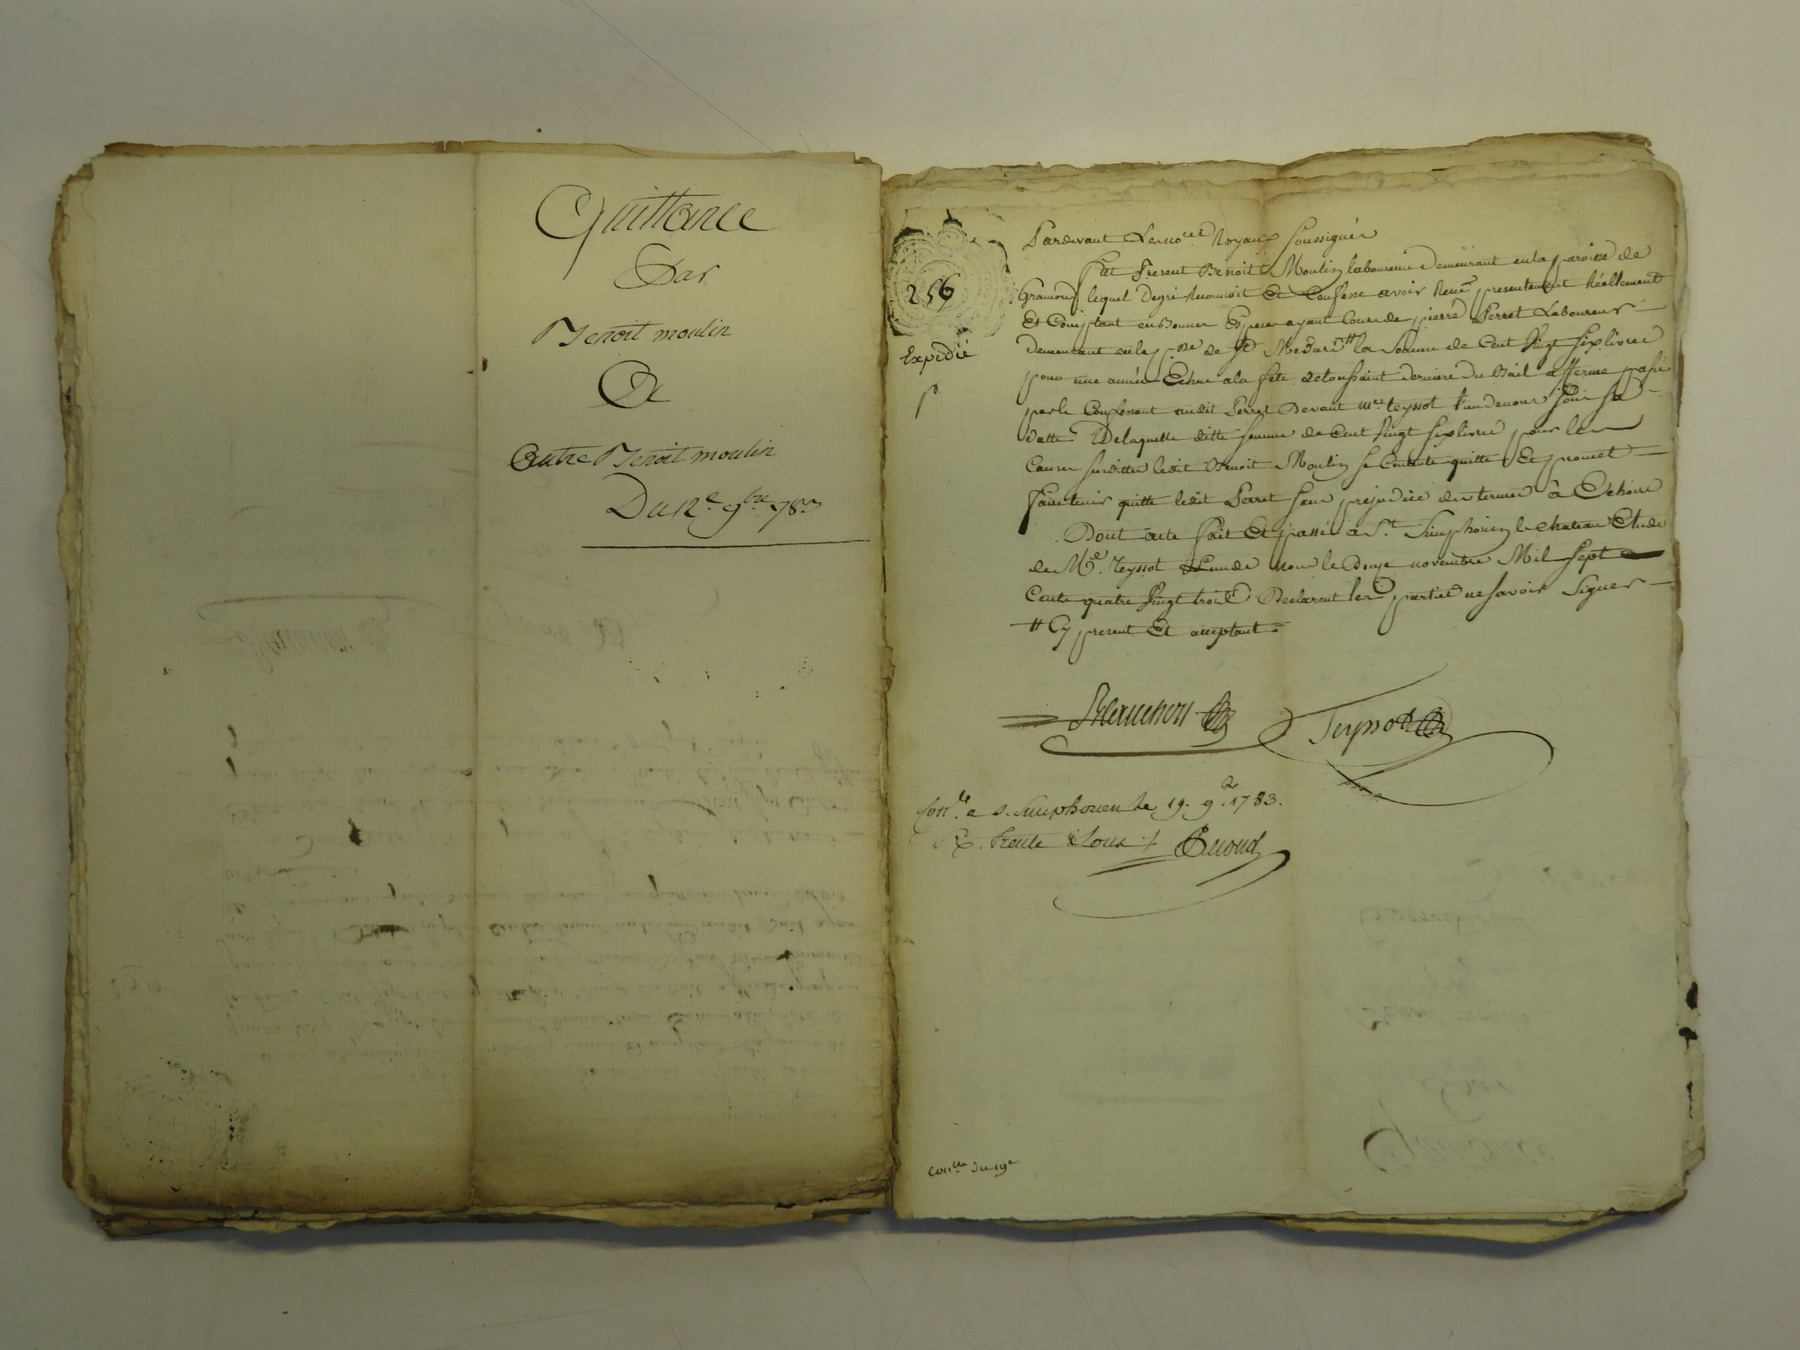 Quittance
Par
Benoit moulin
A
Autre Benoit moulin
Du 12e 9bre 783
256
Expedié
Pardevant Les nores Royaux soussignés
fut Present Benoit Moulin laboureur demeurant en la paroisse de
Gramond lequel de gré Reconnoit Et Confesse avoir Reçu presentement Réellement
Et Comptant en bonnes Especes ayant Cours de pierre Perret Laboureur
demeurant en la pse de St Medard # la somme de Cent Vingt six livres
pour une année Echue a la fête de toussaint derniere du Bail a fferme passé
par le Confessant audit Perret Devant me teyssot l'un de nous sous sa
datte. De laquelle ditte somme de Cent Vingt six livres pour les
Causes susdittes ledit Benoit Moulin se Contente quitte Et promet
faire tenir quitte ledit Perret sans prejudice des termes à Echoire
Dont acte fait Et passé à St. Simphorien le chateau Etude
de Me. Teyssot L'un de nous le douze novembre Mil sept
Cents quatre Vingt trois Declarent les parties ne savoir Signer
# Cy present Et acceptant
Teyssot
Conlé a s. simphorien le 19. 9b. 1783.
R. trente sous
conlé du 19e